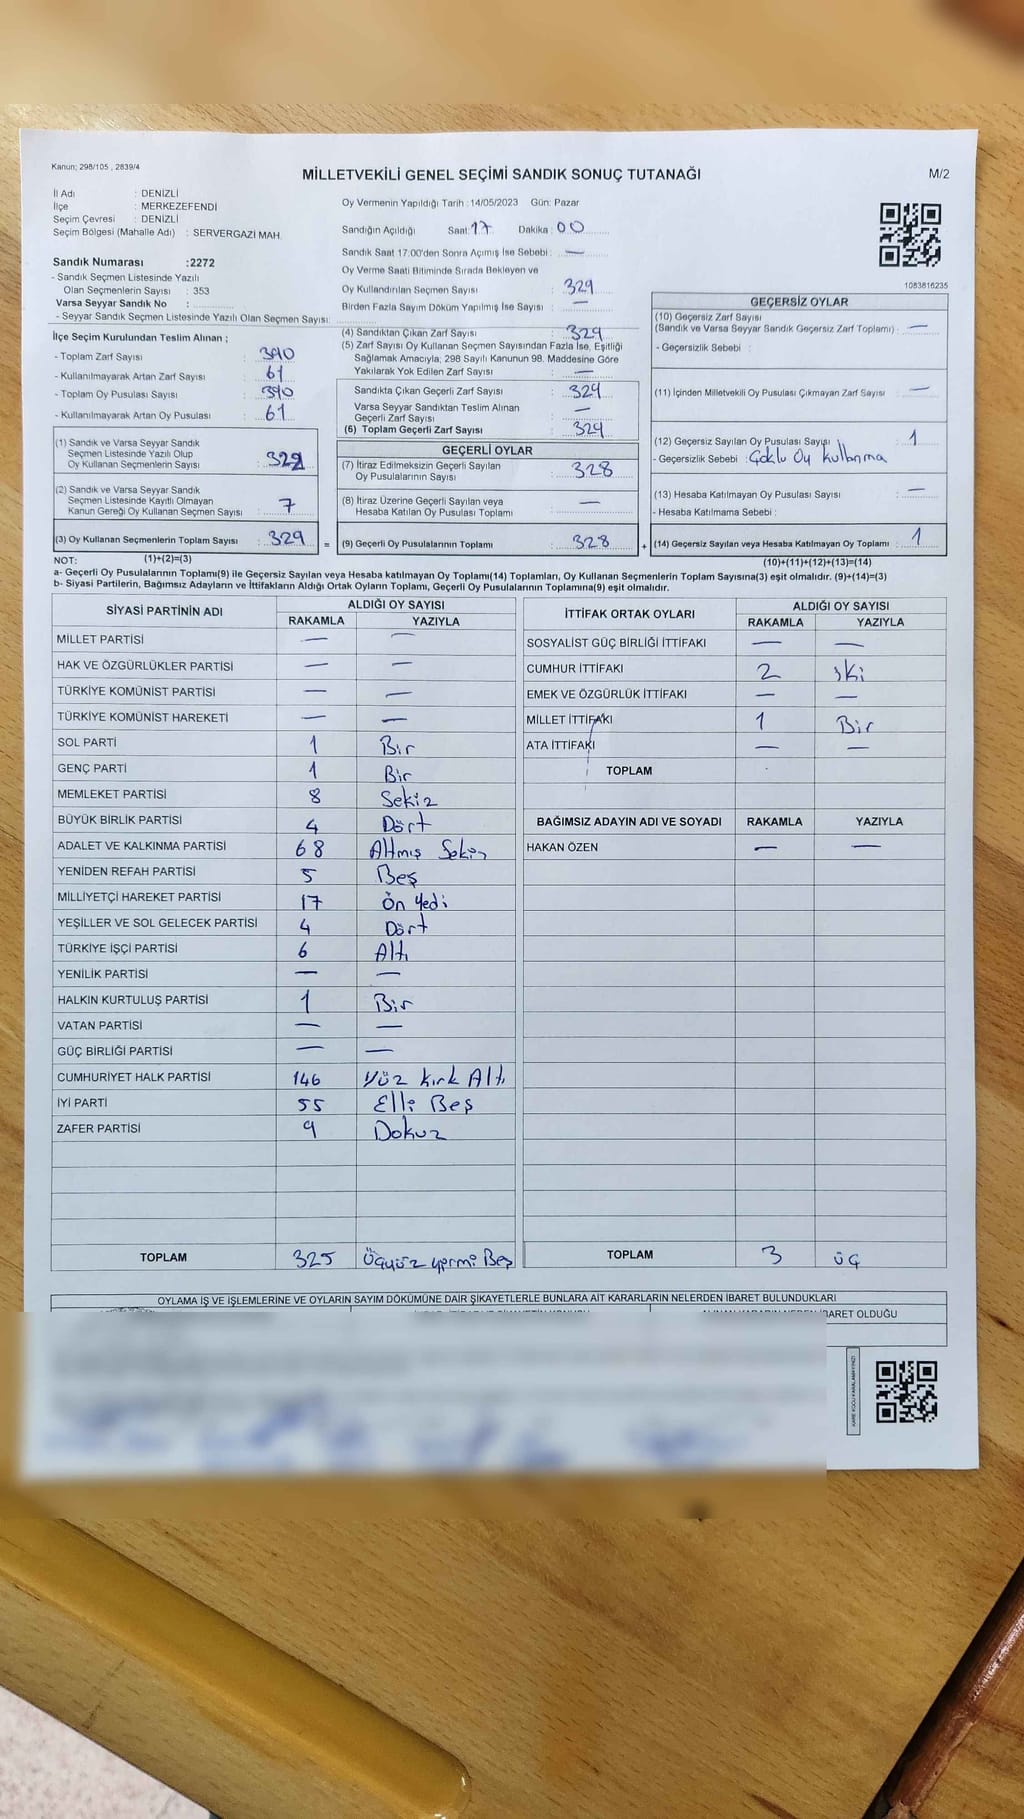 Kanun; 298/105 , 2839/4
MİLLETVEKİLİ GENEL SEÇİMİ SANDIK SONUÇ TUTANAĞI
M/2
İl Adı : DENİZLİ
İlçe : MERKEZEFENDİ
Seçim Çevresi : DENİZLİ
Seçim Bölgesi (Mahalle Adı) : SERVERGAZİ MAH.
Sandık Numarası :2272
- Sandık Seçmen Listesinde Yazılı
Olan Seçmenlerin Sayısı : 353
Varsa Seyyar Sandık No :
- Seyyar Sandık Seçmen Listesinde Yazılı Olan Seçmen Sayısı:
Oy Vermenin Yapıldığı Tarih :14/05/2023 Gün: Pazar
Sandığın Açıldığı Saat: 17 Dakika: 00
Sandık Saat 17:00'den Sonra Açımış İse Sebebi : —
Oy Verme Saati Bitiminde Sırada Bekleyen ve
Oy Kullandırılan Seçmen Sayısı : 329
Birden Fazla Sayım Döküm Yapılmış İse Sayısı : —
1083816235
İlçe Seçim Kurulundan Teslim Alınan ;
- Toplam Zarf Sayısı : 390
- Kullanılmayarak Artan Zarf Sayısı : 61
- Toplam Oy Pusulası Sayısı : 390
- Kullanılmayarak Artan Oy Pusulası : 61
(1) Sandık ve Varsa Seyyar Sandık
Seçmen Listesinde Yazılı Olup
Oy Kullanan Seçmenlerin Sayısı :
(2) Sandık ve Varsa Seyyar Sandık
Seçmen Listesinde Kayıtlı Olmayan
Kanun Gereği Oy Kullanan Seçmen Sayısı : 7
(3) Oy Kullanan Seçmenlerin Toplam Sayısı : 329
(4) Sandıktan Çıkan Zarf Sayısı : 329
(5) Zarf Sayısı Oy Kullanan Seçmen Sayısından Fazla İse, Eşitliği
Sağlamak Amacıyla; 298 Sayılı Kanunun 98. Maddesine Göre
Yakılarak Yok Edilen Zarf Sayısı : —
Sandıkta Çıkan Geçerli Zarf Sayısı : 329
Varsa Seyyar Sandıktan Teslim Alınan
Geçerli Zarf Sayısı : —
(6) Toplam Geçerli Zarf Sayısı : 329
GEÇERLİ OYLAR
(7) İtiraz Edilmeksizin Geçerli Sayılan
Oy Pusulalarının Sayısı : 328
(8) İtiraz Üzerine Geçerli Sayılan veya
Hesaba Katılan Oy Pusulası Toplamı : —
= (9) Geçerli Oy Pusulalarının Toplamı : 328
GEÇERSİZ OYLAR
(10) Geçersiz Zarf Sayısı
(Sandık ve Varsa Seyyar Sandık Geçersiz Zarf Toplamı) : —
- Geçersizlik Sebebi :
(11) İçinden Milletvekili Oy Pusulası Çıkmayan Zarf Sayısı : —
(12) Geçersiz Sayılan Oy Pusulası Sayısı : 1
- Geçersizlik Sebebi : Çoklu Oy Kullanma
(13) Hesaba Katılmayan Oy Pusulası Sayısı : —
- Hesaba Katılmama Sebebi :
+ (14) Geçersiz Sayılan veya Hesaba Katılmayan Oy Toplamı : 1
NOT: (1)+(2)=(3)
(10)+(11)+(12)+(13)=(14)
a- Geçerli Oy Pusulalarının Toplamı(9) ile Geçersiz Sayılan veya Hesaba katılmayan Oy Toplamı(14) Toplamları, Oy Kullanan Seçmenlerin Toplam Sayısına(3) eşit olmalıdır. (9)+(14)=(3)
b- Siyasi Partilerin, Bağımsız Adayların ve İttifakların Aldığı Ortak Oyların Toplamı, Geçerli Oy Pusulalarının Toplamına(9) eşit olmalıdır.
SİYASİ PARTİNİN ADI ALDIĞI OY SAYISI
RAKAMLA YAZIYLA
MİLLET PARTİSİ — —
HAK VE ÖZGÜRLÜKLER PARTİSİ — —
TÜRKİYE KOMÜNİST PARTİSİ — —
TÜRKİYE KOMÜNİST HAREKETİ — —
SOL PARTİ 1 Bir
GENÇ PARTİ 1 Bir
MEMLEKET PARTİSİ 8 Sekiz
BÜYÜK BİRLİK PARTİSİ 4 Dört
ADALET VE KALKINMA PARTİSİ 68 Altmış Sekiz
YENİDEN REFAH PARTİSİ 5 Beş
MİLLİYETÇİ HAREKET PARTİSİ 17 Ön Yedi
YEŞİLLER VE SOL GELECEK PARTİSİ 4 Dört
TÜRKİYE İŞÇİ PARTİSİ 6 Altı
YENİLİK PARTİSİ — —
HALKIN KURTULUŞ PARTİSİ 1 Bir
VATAN PARTİSİ — —
GÜÇ BİRLİĞİ PARTİSİ — —
CUMHURİYET HALK PARTİSİ 146 Yüz Kırk Altı
İYİ PARTİ 55 Elli Beş
ZAFER PARTİSİ 9 Dokuz
TOPLAM 325 Üçyüz yirmi Beş
İTTİFAK ORTAK OYLARI ALDIĞI OY SAYISI
RAKAMLA YAZIYLA
SOSYALİST GÜÇ BİRLİĞİ İTTİFAKI — —
CUMHUR İTTİFAKI 2 İki
EMEK VE ÖZGÜRLÜK İTTİFAKI — —
MİLLET İTTİFAKI 1 Bir
ATA İTTİFAKI — —
TOPLAM
BAĞIMSIZ ADAYIN ADI VE SOYADI RAKAMLA YAZIYLA
HAKAN ÖZEN — —
TOPLAM 3 üç
OYLAMA İŞ VE İŞLEMLERİNE VE OYLARIN SAYIM DÖKÜMÜNE DAİR ŞİKAYETLERLE BUNLARA AİT KARARLARIN NELERDEN İBARET BULUNDUKLARI
ALINAN KARARIN NEDEN İBARET OLDUĞU